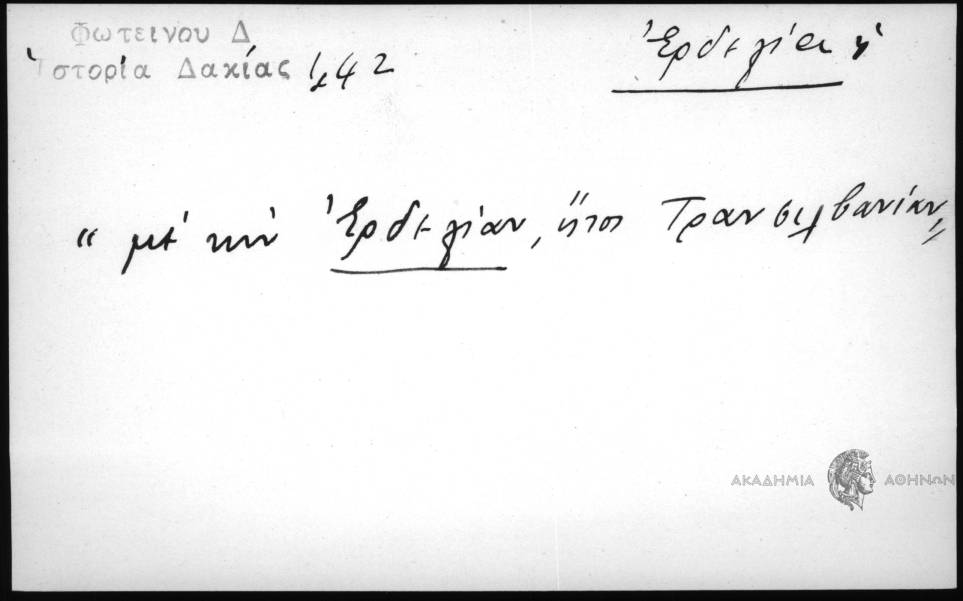 Φωτεινου Δ
Ἱστορία Δακίας 1,42
Ἐρδελία ἡ
“ μὲ τὴν Ἐρδελίαν, ἤτοι Τρανσιλβανίαν„
ΑΚΑΔΗΜΙΑ ΑΘΗΝΩΝ